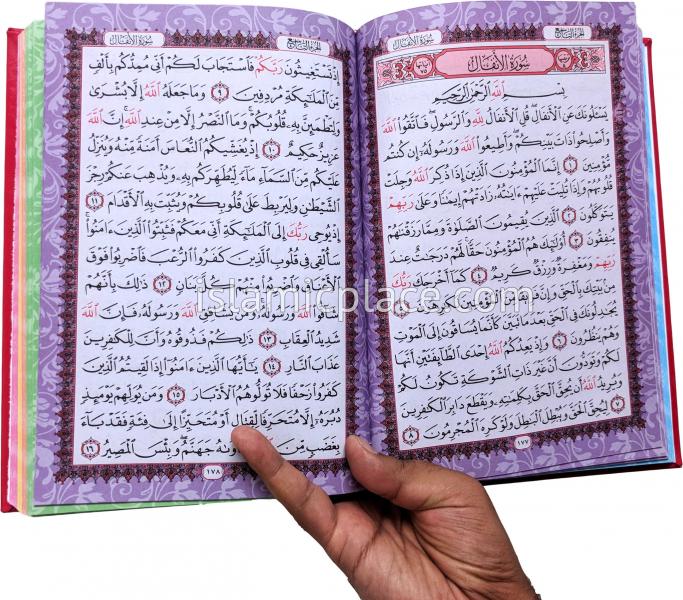 الجزء التاسع
سورة الأنفال
سُورَةُ الأَنفَالِ
آياتها ٧٥
بِسْمِ اللَّهِ الرَّحْمَٰنِ الرَّحِيمِ
يَسْـَٔلُونَكَ عَنِ ٱلْأَنفَالِ ۖ قُلِ ٱلْأَنفَالُ لِلَّهِ وَٱلرَّسُولِ ۖ فَٱتَّقُوا۟ ٱللَّهَ
وَأَصْلِحُوا۟ ذَاتَ بَيْنِكُمْ ۖ وَأَطِيعُوا۟ ٱللَّهَ وَرَسُولَهُۥٓ إِن كُنتُم
مُّؤْمِنِينَ ١ إِنَّمَا ٱلْمُؤْمِنُونَ ٱلَّذِينَ إِذَا ذُكِرَ ٱللَّهُ وَجِلَتْ
قُلُوبُهُمْ وَإِذَا تُلِيَتْ عَلَيْهِمْ ءَايَٰتُهُۥ زَادَتْهُمْ إِيمَٰنًا وَعَلَىٰ رَبِّهِمْ
يَتَوَكَّلُونَ ٢ ٱلَّذِينَ يُقِيمُونَ ٱلصَّلَوٰةَ وَمِمَّا رَزَقْنَٰهُمْ
يُنفِقُونَ ٣ أُو۟لَٰٓئِكَ هُمُ ٱلْمُؤْمِنُونَ حَقًّا ۚ لَّهُمْ دَرَجَٰتٌ عِندَ
رَبِّهِمْ وَمَغْفِرَةٌ وَرِزْقٌ كَرِيمٌ ٤ كَمَآ أَخْرَجَكَ رَبُّكَ
مِنۢ بَيْتِكَ بِٱلْحَقِّ وَإِنَّ فَرِيقًا
يُجَٰدِلُونَكَ فِى ٱلْحَقِّ بَعْدَ مَا تَبَيَّنَ كَأَنَّمَا يُسَاقُونَ إِلَى ٱلْمَوْتِ
وَهُمْ يَنظُرُونَ ٦ وَإِذْ يَعِدُكُمُ ٱللَّهُ إِحْدَى ٱلطَّآئِفَتَيْنِ أَنَّهَا
لَكُمْ وَتَوَدُّونَ أَنَّ غَيْرَ ذَاتِ ٱلشَّوْكَةِ تَكُونُ لَكُمْ
وَيُرِيدُ ٱللَّهُ أَن يُحِقَّ ٱلْحَقَّ بِكَلِمَٰتِهِۦ وَيَقْطَعَ دَابِرَ ٱلْكَٰفِرِينَ
٧ لِيُحِقَّ ٱلْحَقَّ وَيُبْطِلَ ٱلْبَٰطِلَ وَلَوْ كَرِهَ ٱلْمُجْرِمُونَ ٨
١٧٧
الجزء التاسع
سورة الأنفال
إِذْ تَسْتَغِيثُونَ رَبَّكُمْ فَٱسْتَجَابَ لَكُمْ أَنِّى مُمِدُّكُم بِأَلْفٍ
مِّنَ ٱلْمَلَٰٓئِكَةِ مُرْدِفِينَ ٩ وَمَا جَعَلَهُ ٱللَّهُ إِلَّا بُشْرَىٰ
وَلِتَطْمَئِنَّ بِهِۦ قُلُوبُكُمْ ۚ وَمَا ٱلنَّصْرُ إِلَّا مِنْ عِندِ ٱللَّهِ ۚ إِنَّ ٱللَّهَ
عَزِيزٌ حَكِيمٌ ١٠ إِذْ يُغَشِّيكُمُ ٱلنُّعَاسَ أَمَنَةً مِّنْهُ وَيُنَزِّلُ
عَلَيْكُم مِّنَ ٱلسَّمَآءِ مَآءً لِّيُطَهِّرَكُم بِهِۦ وَيُذْهِبَ عَنكُمْ رِجْزَ
ٱلشَّيْطَٰنِ وَلِيَرْبِطَ عَلَىٰ قُلُوبِكُمْ وَيُثَبِّتَ بِهِ ٱلْأَقْدَامَ ١١
إِذْ يُوحِى رَبُّكَ إِلَى ٱلْمَلَٰٓئِكَةِ أَنِّى مَعَكُمْ فَثَبِّتُوا۟ ٱلَّذِينَ ءَامَنُوا۟ ۚ
سَأُلْقِى فِى قُلُوبِ ٱلَّذِينَ كَفَرُوا۟ ٱلرُّعْبَ فَٱضْرِبُوا۟ فَوْقَ
ٱلْأَعْنَاقِ وَٱضْرِبُوا۟ مِنْهُمْ كُلَّ بَنَانٍ ١٢ ذَٰلِكَ بِأَنَّهُمْ
شَآقُّوا۟ ٱللَّهَ وَرَسُولَهُۥ ۚ وَمَن يُشَاقِقِ ٱللَّهَ وَرَسُولَهُۥ فَإِنَّ ٱللَّهَ
شَدِيدُ ٱلْعِقَابِ ١٣ ذَٰلِكُمْ فَذُوقُوهُ وَأَنَّ لِلْكَٰفِرِينَ
عَذَابَ ٱلنَّارِ ١٤ يَٰٓأَيُّهَا ٱلَّذِينَ ءَامَنُوٓا۟ إِذَا لَقِيتُمُ ٱلَّذِينَ
كَفَرُوا۟ زَحْفًا فَلَا تُوَلُّوهُمُ ٱلْأَدْبَارَ ١٥ وَمَن يُوَلِّهِمْ يَوْمَئِذٍ
دُبُرَهُۥٓ إِلَّا مُتَحَرِّفًا لِّقِتَالٍ أَوْ مُتَحَيِّزًا إِلَىٰ فِئَةٍ فَقَدْ بَآءَ
بِغَضَبٍ مِّنَ جَهَنَّمُ ۖ وَبِئْسَ ٱلْمَصِيرُ ١٦
١٧٨
islamicplace.com